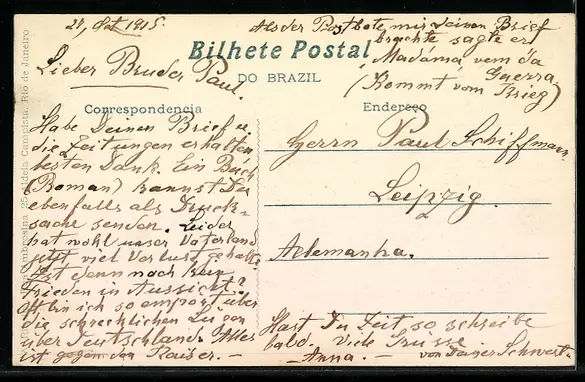 21, Okt. 1915.
Als der Postbote mir Deinen Brief
brachte sagte er
Madama vem da
Guerra
(Kommt vom Krieg)
Bilhete Postal
DO BRAZIL
Lieber Bruder Paul.
Correspondencia
Endereço
Habe Deinen Brief u.
die Zeitungen erhalten
besten Dank. Ein Buch
(Roman) kannst Du
ebenfalls als Druck-
sache senden. Leider
hat wohl unser Vaterland
jetzt viel Verlust gehabt.
Ist denn noch kein
Frieden in Aussicht?
Oft bin ich so empört über
die schrecklichen Lügen
über Deutschland. Alles
ist gegen den Kaiser. -
Herrn Paul Schiffmann
Leipzig.
Alemanha.
Hast Du Zeit so schreibe
bald. Viele Grüsse
- Anna. - von Deiner Schwest.
Ambrosina 25, Aldeia Campista. Rio de Janeiro